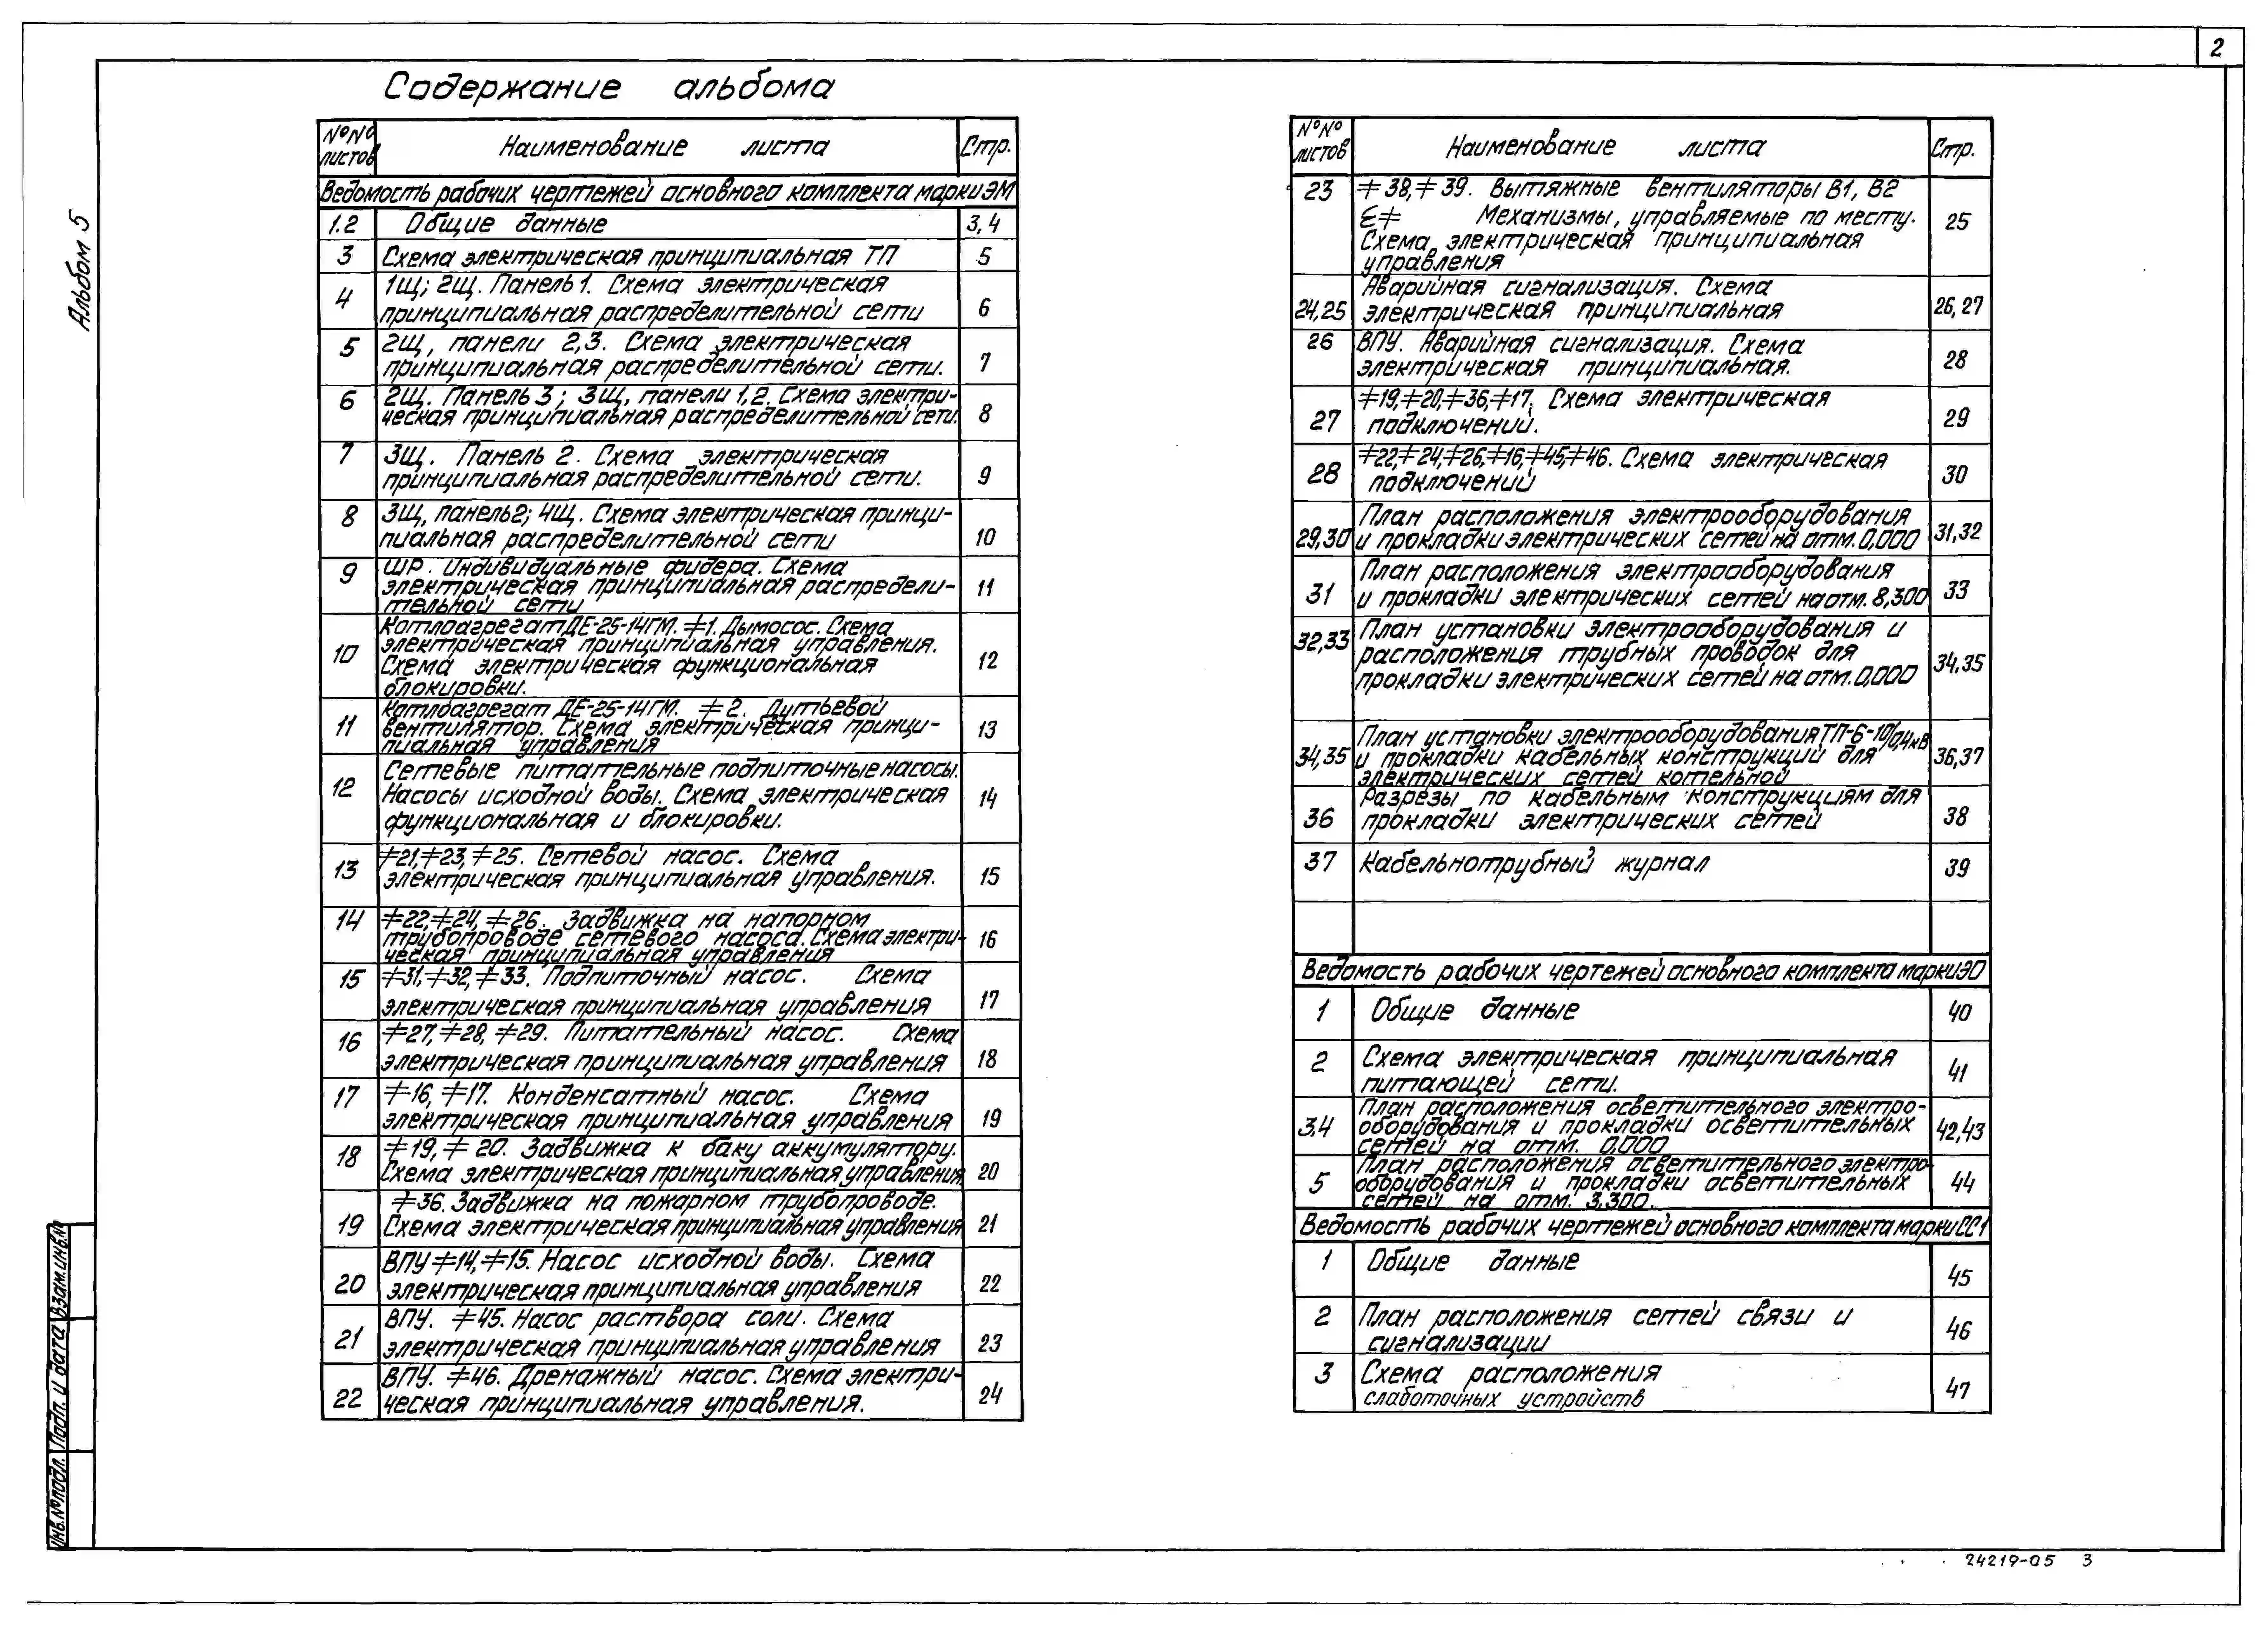 2
Альбом 5
Содержание альбома
№№ листов
Наименование листа
Стр.
Ведомость рабочих чертежей основного комплекта марки ЭМ
1.2 Общие данные 3,4
3 Схема электрическая принципиальная ТП 5
1щ; 2щ. Панель 1. Схема электрическая
4 принципиальная распределительной сети 6
5 2щ, панели 2,3. Схема электрическая
принципиальная распределительной сети. 7
6 2щ. Панель 3; 3щ, панели 1,2. Схема электри-
ческая принципиальная распределительной сети. 8
7 3щ. Панель 2. Схема электрическая
принципиальная распределительной сети. 9
8 3щ, панель 2; 4щ. Схема электрическая принци-
пиальная распределительной сети 10
9 ШР. Индивидуальные фидера. Схема
электрическая принципиальная распредели- 11
тельной сети
Котлоагрегат ДЕ-25-14ГМ. ≠1. Дымосос. Схема
электрическая принципиальная управления.
10 Схема электрическая функциональная 12
блокировки.
Котлоагрегат ДЕ-25-14ГМ. ≠2. Дутьевой
11 вентилятор. Схема электрическая принци- 13
пиальная управления
Сетевые питательные подпиточные насосы.
12 Насосы исходной воды. Схема электрическая 14
функциональная и блокировки.
≠21,≠23,≠25. Сетевой насос. Схема
13 электрическая принципиальная управления. 15
14 ≠22,≠24,≠26. Задвижка на напорном
трубопроводе сетевого насоса. Схема электри- 16
ческая принципиальная управления
15 ≠31,≠32,≠33. Подпиточный насос. Схема
электрическая принципиальная управления 17
16 ≠27,≠28,≠29. Питательный насос. Схема
электрическая принципиальная управления 18
17 ≠16, ≠17. Конденсатный насос. Схема
электрическая принципиальная управления 19
18 ≠19,≠20. Задвижка к баку аккумулятору.
Схема электрическая принципиальная управления 20
≠36. Задвижка на пожарном трубопроводе.
19 Схема электрическая принципиальная управления 21
ВПУ ≠14,≠15. Насос исходной воды. Схема
20 электрическая принципиальная управления 22
ВПУ. ≠45. Насос раствора соли. Схема
21 электрическая принципиальная управления 23
ВПУ. ≠46. Дренажный насос. Схема электри-
22 ческая принципиальная управления. 24
№№ листов
Наименование листа
Стр.
23 ≠38,≠39. Вытяжные вентиляторы В1, В2
Механизмы, управляемые по месту. 25
Схема электрическая принципиальная
управления
Аварийная сигнализация. Схема
24,25 электрическая принципиальная 26,27
26 ВПУ. Аварийная сигнализация. Схема
электрическая принципиальная. 28
≠19,≠20,≠36,≠17. Схема электрическая
27 подключений. 29
≠22,≠24,≠26,≠16,≠45,≠46. Схема электрическая
28 подключений 30
План расположения электрооборудования
29,30 и прокладки электрических сетей на отм. 0,000 31,32
План расположения электрооборудования
31 и прокладки электрических сетей на отм. 8,300 33
32,33 План установки электрооборудования и
расположения трубных проводок для 34,35
прокладки электрических сетей на отм. 0,000
План установки электрооборудования ТП-6-10/0,4кВ
34,35 и прокладки кабельных конструкций для 36,37
электрических сетей котельной
Разрезы по кабельным конструкциям для
36 прокладки электрических сетей 38
37 Кабельнотрубный журнал 39
Ведомость рабочих чертежей основного комплекта марки ЭО
1 Общие данные 40
2 Схема электрическая принципиальная
питающей сети. 41
План расположения осветительного электро-
3.4 оборудования и прокладки осветительных 42,43
сетей на отм. 0,000
План расположения осветительного электро-
5 оборудования и прокладки осветительных 44
сетей на отм. 3.300.
Ведомость рабочих чертежей основного комплекта марки СС1
1 Общие данные 45
2 План расположения сетей связи и
сигнализации 46
3 Схема расположения
слаботочных устройств 47
Инв.№подл. Подп. и дата Взам.инв.№
24219-05 3